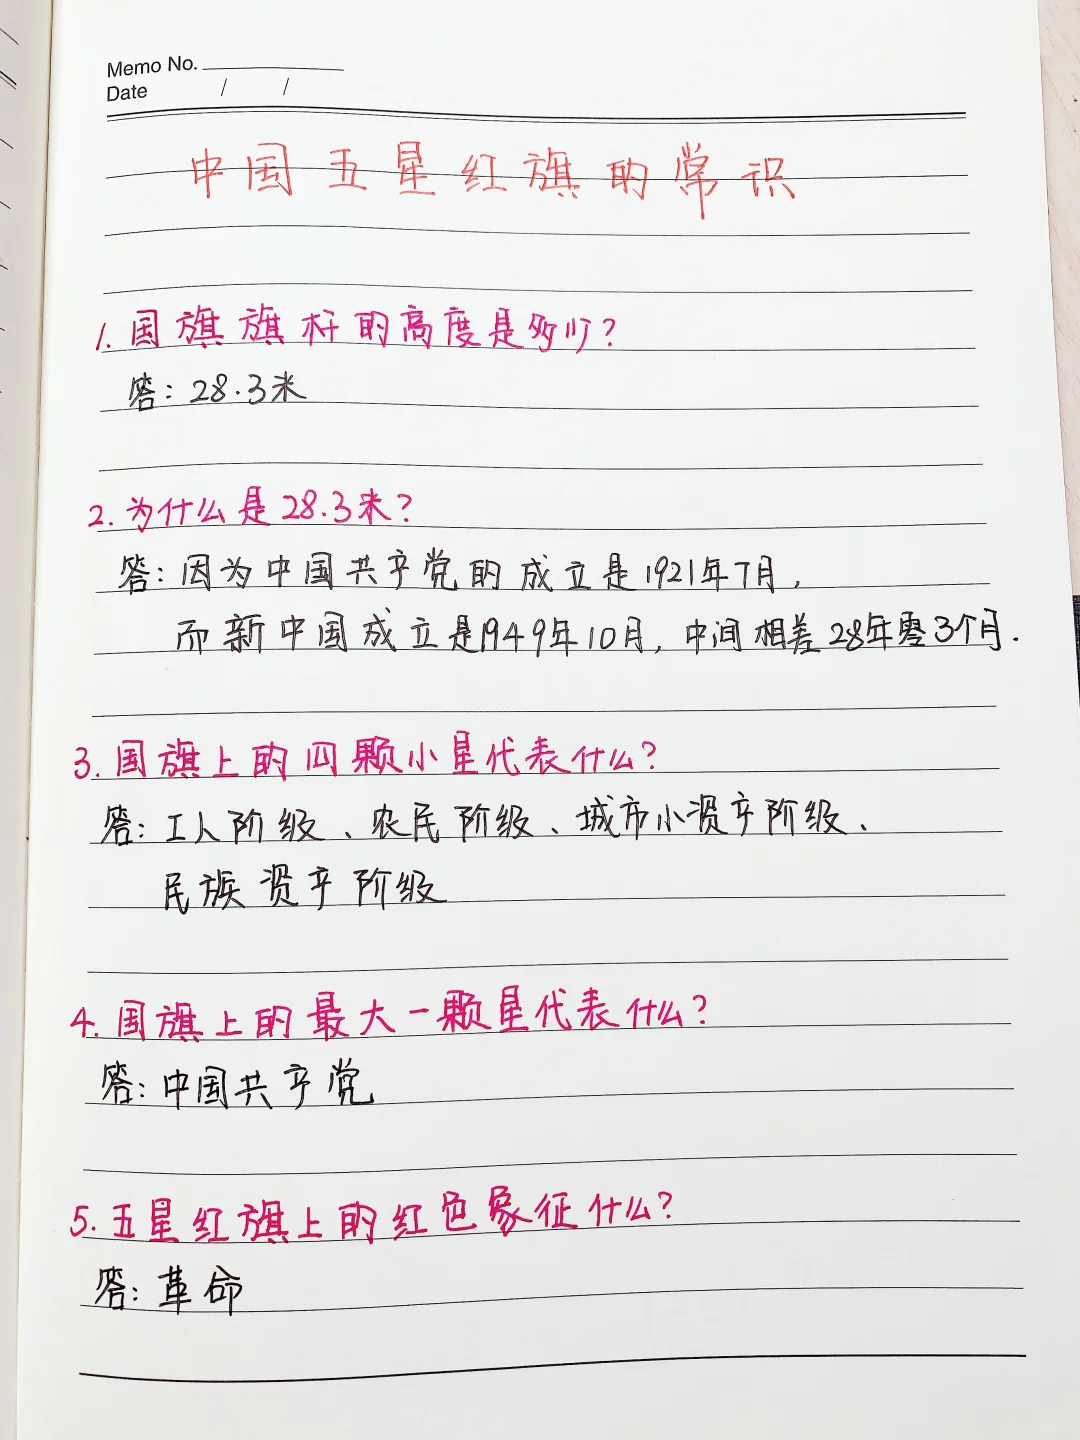 Memo No.
Date / /
中国五星红旗的常识
1. 国旗旗杆的高度是多少?
答: 28.3米
2. 为什么是28.3米?
答: 因为中国共产党的成立是1921年7月,
而新中国成立是1949年10月, 中间相差28年零3个月.
3. 国旗上的四颗小星代表什么?
答: 工人阶级、农民阶级、城市小资产阶级、
民族资产阶级
4. 国旗上的最大一颗星代表什么?
答: 中国共产党
5. 五星红旗上的红色象征什么?
答: 革命